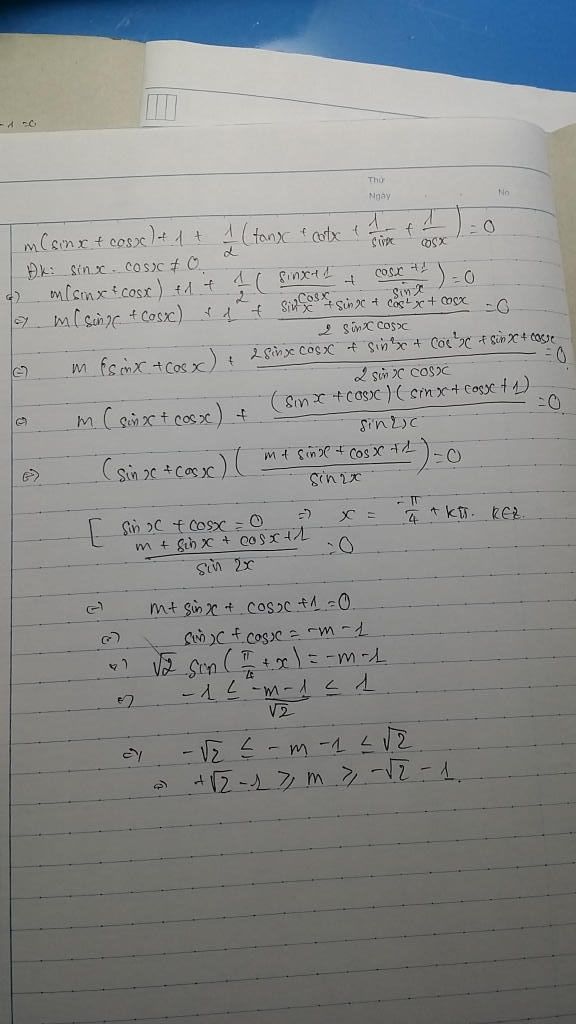 -1=0
Thứ
Ngày
No
m(sinx + cosx) + 1 + 1/2 (tanx + cotx + 1/sinx + 1/cosx) = 0
ĐK: sinx . cosx ≠ 0
⇔ m(sinx + cosx) + 1 + 1/2 ( (sinx+1)/cosx + (cosx+1)/sinx ) = 0
⇔ m(sinx + cosx) + 1 + (sin²x + sinx + cos²x + cosx)/(2 sinx cosx) = 0
⇔ m (sinx + cosx) + (2 sinx cosx + sin²x + cos²x + sinx + cosx)/(2 sinx cosx) = 0
⇔ m (sinx + cosx) + ((sinx + cosx)(sinx + cosx + 1))/(sin2x) = 0
⇔ (sinx + cosx) ( (m + sinx + cosx + 1)/(sin2x) ) = 0
[ sinx + cosx = 0 ⇒ x = -π/4 + kπ. k∈Z.
(m + sinx + cosx + 1)/(sin 2x) = 0
⇔ m + sinx + cosx + 1 = 0
⇔ sinx + cosx = -m - 1
⇔ √2 sin(π/4 + x) = -m - 1
⇔ -1 ≤ (-m - 1)/√2 ≤ 1
⇔ -√2 ≤ -m - 1 ≤ √2
⇔ +√2 - 1 ≥ m ≥ -√2 - 1.